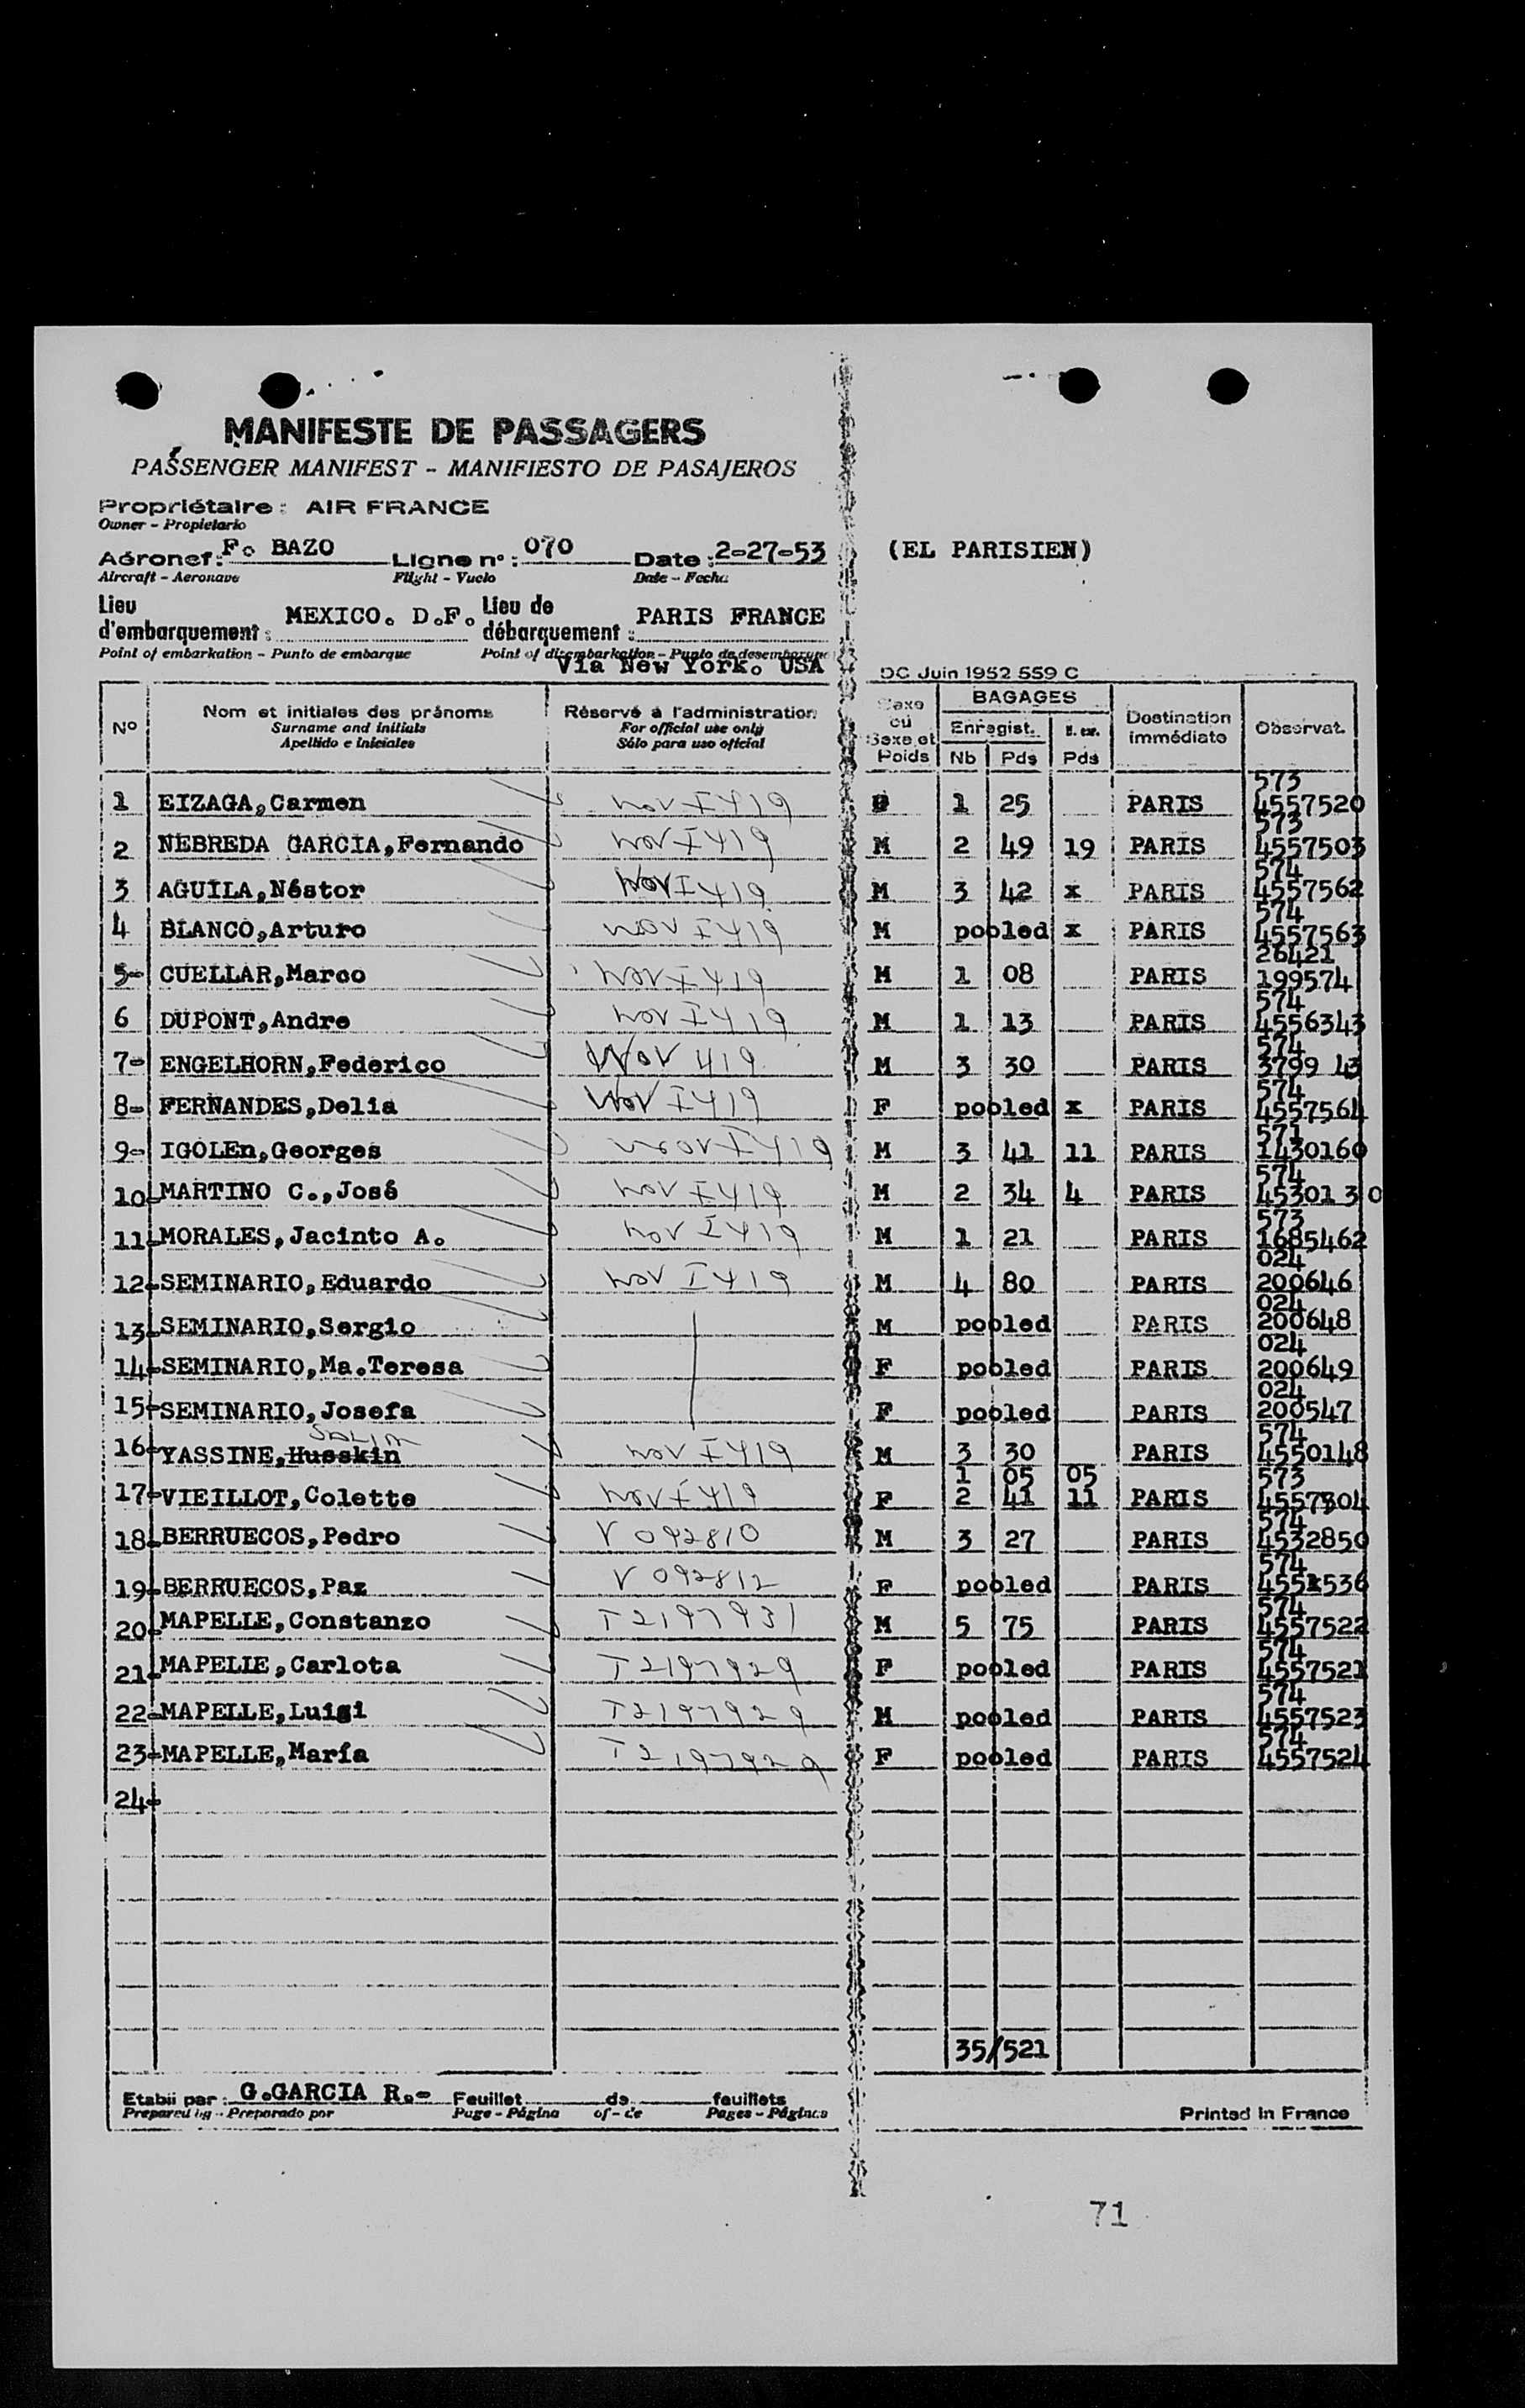 MANIFESTE DE PASSAGERS
PASSENGER MANIFEST - MANIFIESTO DE PASAJEROS
Propriétaire : AIR FRANCE
Owner - Propietario
Aéronef : F. BAZO Ligne n° : 070 Date : 2-27-53 (EL PARISIEN)
Aircraft - Aeronave Flight - Vuelo Date - Fecha
Lieu d'embarquement : MEXICO. D.F. Lieu de débarquement : PARIS FRANCE
Point of embarkation - Punto de embarque Point of disembarkation - Punto de desembarque
Via New York. USA
DC Juin 1952 559 C
N° Nom et initiales des prénoms Réservé à l'administration Sexe ou Sexe et Poids BAGAGES Destination immédiate Observat.
Surname and initials For official use only Enregist. Pds
Apellido e iniciales Sólo para uso oficial Nb Pds
573
1 EIZAGA,Carmen nov I 419 1 25 PARIS 4557520
573
2 NEBREDA GARCIA,Fernando nov I 419 M 2 49 19 PARIS 4557503
574
3 AGUILA,Néstor nov I 419 M 3 42 x PARIS 4557562
574
4 BLANCO,Arturo nov I 419 M pooled x PARIS 4557563
26421
5- CUELLAR,Marco nov I 419 M 1 08 PARIS 199574
574
6 DUPONT,Andre nov I 419 M 1 13 PARIS 4556343
574
7- ENGELHORN,Federico nov 419 M 3 30 PARIS 3799 43
574
8- FERNANDES,Delia nov I 419 F pooled x PARIS 4557564
571
9- IGOLEn,Georges nov I 419 M 3 41 11 PARIS 1430160
574
10-MARTINO C.,José nov I 419 M 2 34 4 PARIS 45301 3 0
573
11-MORALES,Jacinto A. nov I 419 M 1 21 PARIS 1685462
024
12-SEMINARIO,Eduardo nov I 419 M 4 80 PARIS 200646
024
13-SEMINARIO,Sergio M pooled PARIS 200648
024
14-SEMINARIO,Ma.Teresa F pooled PARIS 200649
024
15-SEMINARIO,Josefa F pooled PARIS 200547
SALIM 574
16-YASSINE,Husskin nov I 419 M 3 30 PARIS 4550148
1 05 05 573
17-VIEILLOT,Colette nov I 419 F 2 41 11 PARIS 4557504
574
18-BERRUECOS,Pedro V 092810 M 3 27 PARIS 4532850
574
19-BERRUECOS,Paz V 092812 F pooled PARIS
574
20-MAPELLE,Constanzo T2197931 M 5 75 PARIS 4557522
574
21-MAPELLE,Carlota T2197929 F pooled PARIS 4557521
574
22-MAPELLE,Luigi T2197929 M pooled PARIS 4557523
574
23-MAPELLE,María T2197929 F pooled PARIS 4557524
24-
35/521
Etabli par : G.GARCIA R.- Feuillet de feuillets
Prepared by - Preparado por Page - Página of - de Pages - Páginas Printed in France
71